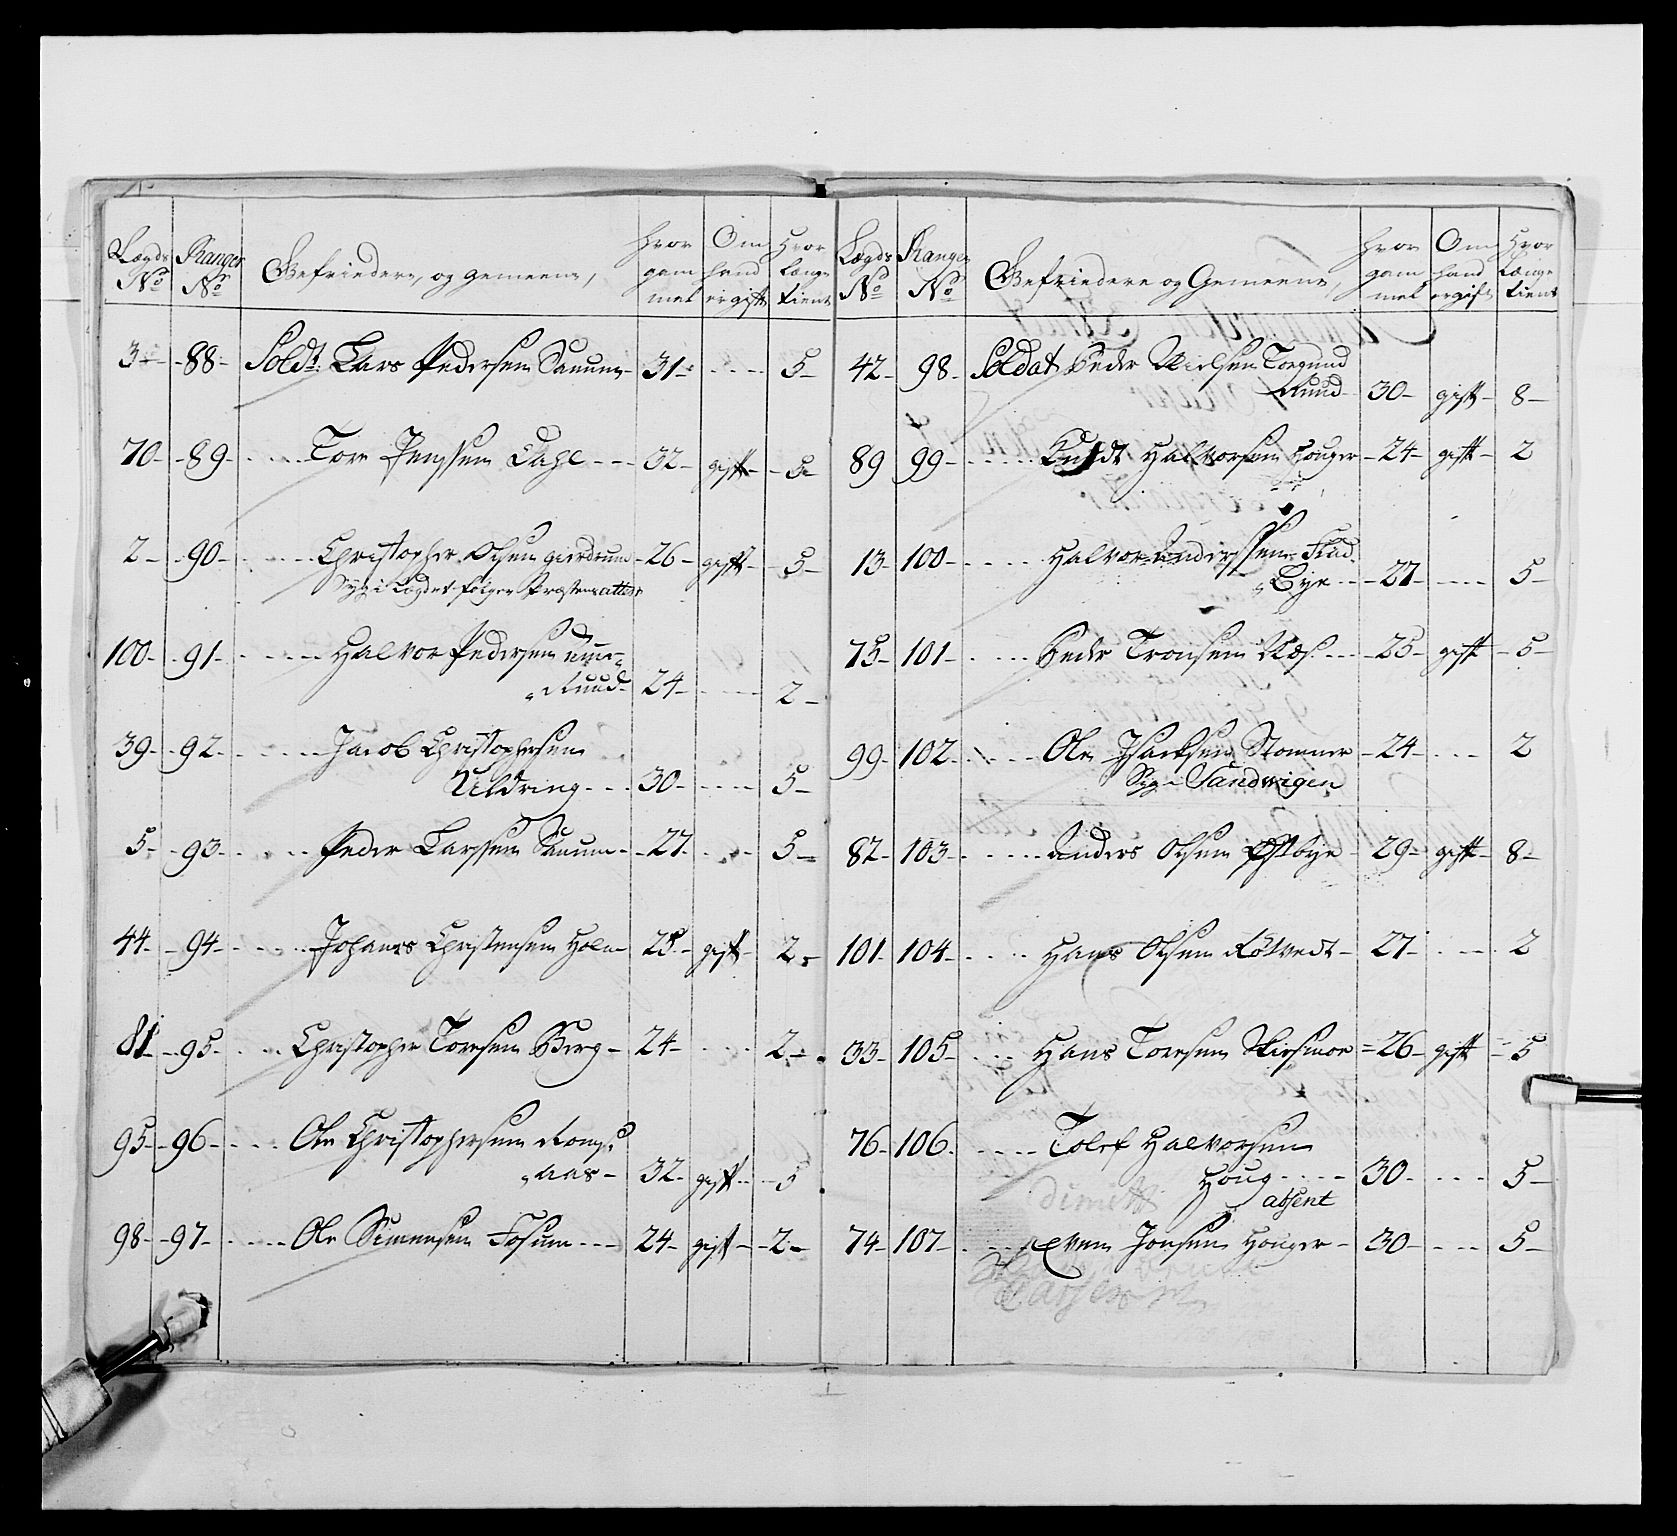 Lægds No Ranger No Gefriedere, og gemeene, hvor gam mel Om hand er gift Hvor længe tient
3 - 88 - Soldt. Lars Pedersen Sauum - 31 - 5 -
70 - 89 - Tore Jenssen Dahl - 32 - gift - 5
2 - 90 - Christopher Olsen gierdrum - 26 - gift - 5 -
Syg i Lægdet følger Præstens attest
100 - 91 - Halvor Pedersen
Ruud - 24 - 2 -
39 - 92 - Jacob Christophersen
Uldring - 30 - 5 -
5 - 93 - Peder Larssen Sauum - 27 - 5 -
44 - 94 - Johanes Christensen Holm - 25 - gift - 2
81 - 95 - Christopher Toresen Berg - 24 - 2 -
95 - 96 - Ole Christophersen Rong
aas - 32 - gift - 5
98 - 97 - Ole Simensen Fosum - 24 - gift - 2 -
Lægds No Ranger No Gefriedere og Gemeene, hvor gam mel Om hand er gift Hvor Længe tient
42 - 98 - Soldat Peder Nielsen Torgund
Ruud - 30 - gift - 8 -
89 99 - Knudt Halvorsen Houger - 24 - gift - 2
13 - 100 - Halvor Anderssen
Bye - 27 - 5 -
75 - 101 - Peder Tronsen Næs - 25 - gift - 5 -
99 - 102 - Ole Isacksen Stommer - 24 - 2
Syg i Sandvigen
82 - 103 - Anders Olsen Østbye - 29 - gift - 8 -
101 - 104 - Hans Olsen Kølvedt - 27 - 2
33 - 105 - Hans Toresen Skirsmoe - 26 - gift - 5
76 - 106 - Tolef Halvorsen
Houg - 30 - 5 -
dimitt absent
74 - 107 - Even Jonsen Houger - 30 - 5 -